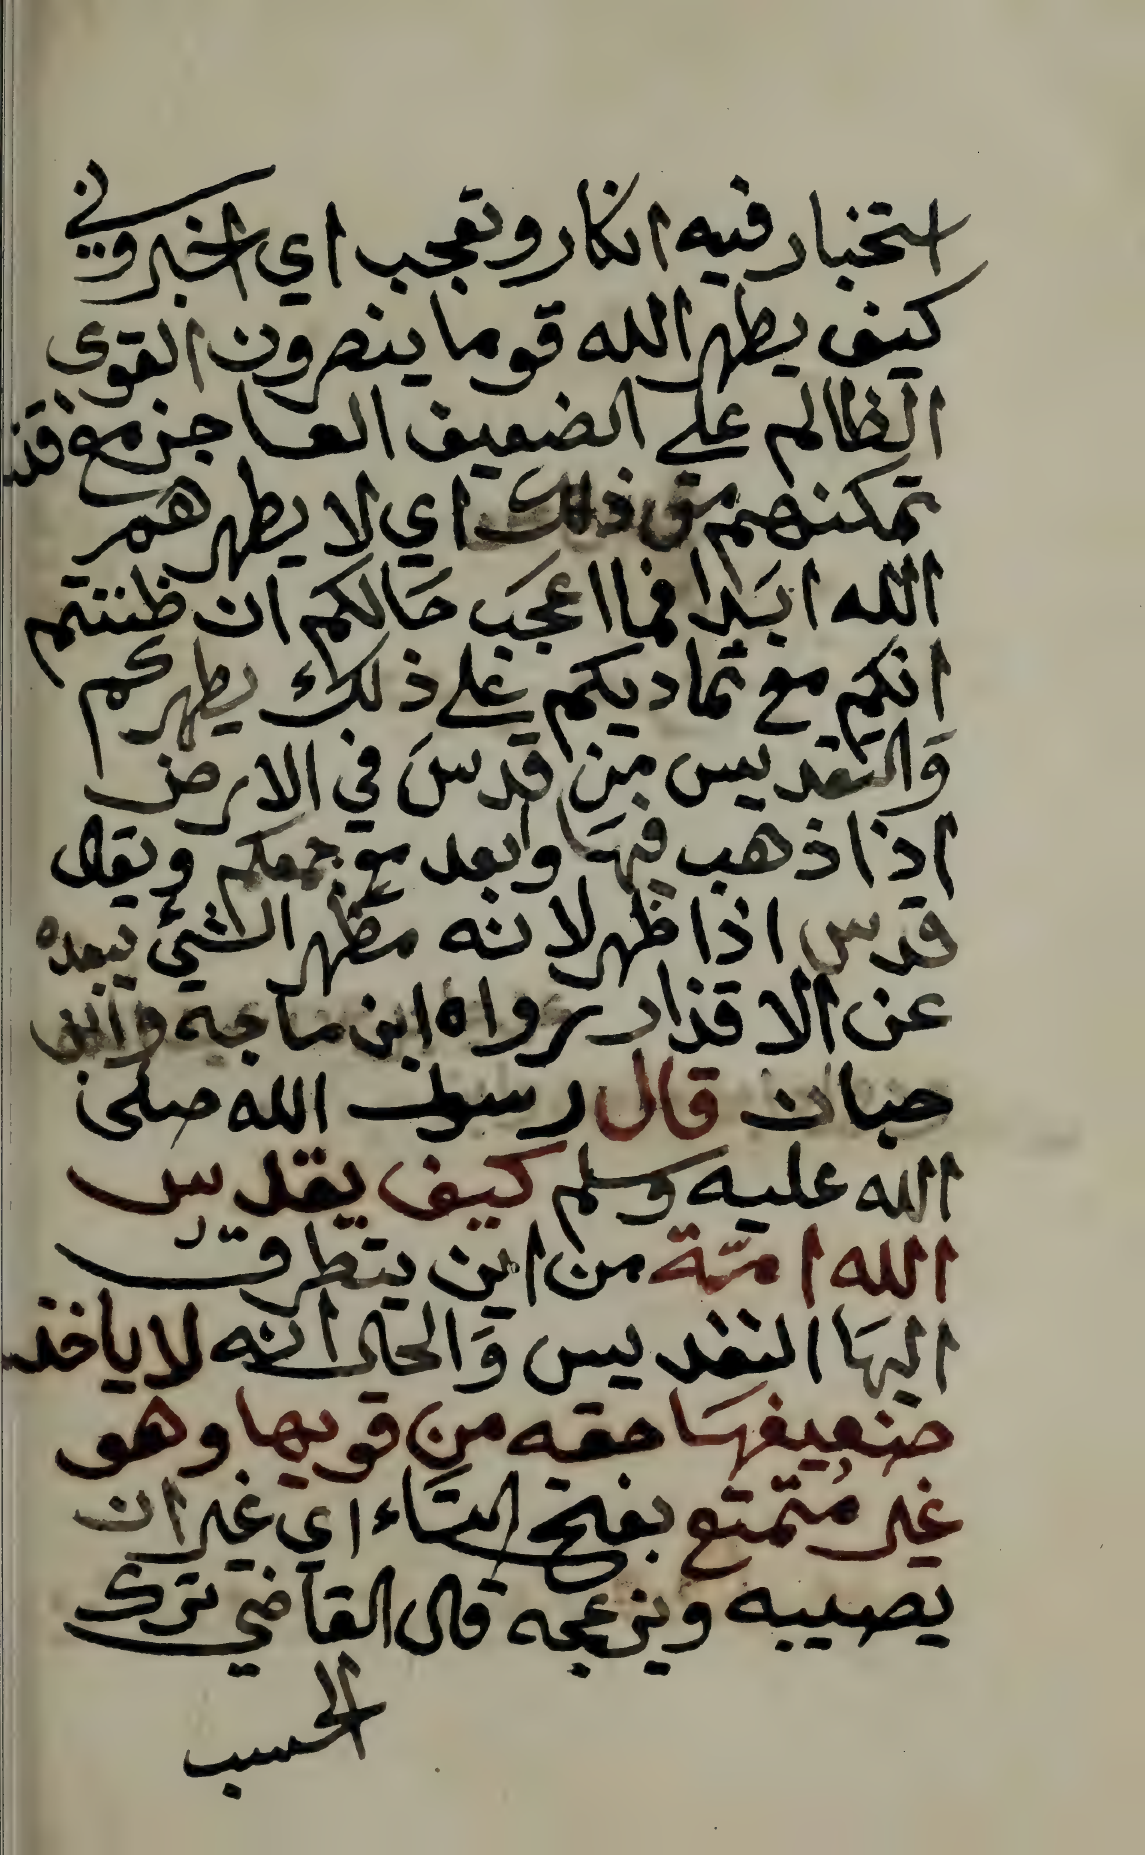 استخبار فيه انكار وتعجب اي اخبروني
كيف يطهر الله قوما ينصرون القوى
الظالم على الضعيف العاجز مع
تمكنهم من ذلك اي لا يطهرهم
الله ابدا فما اعجب حالكم ان ظننتم
انكم مع تماديكم على ذلك يطهركم
والتقديس من قدس في الارض
اذا ذهب فيها وابعد ويقال
قدس اذا طهر لانه مطهر الشيء يبعده
عن الاقذار رواه ابن ماجه وابن
حبان قال رسول الله صلى
الله عليه وسلم كيف يقدس
الله امة من اين يتطرق
اليها التقديس والحال انه لا ياخذ
ضعيفها حقه من قويها وهو
غير متمتع بفتح التاء اي غير ان
يصيبه ويزعجه قال القاضي ترك
الحسب